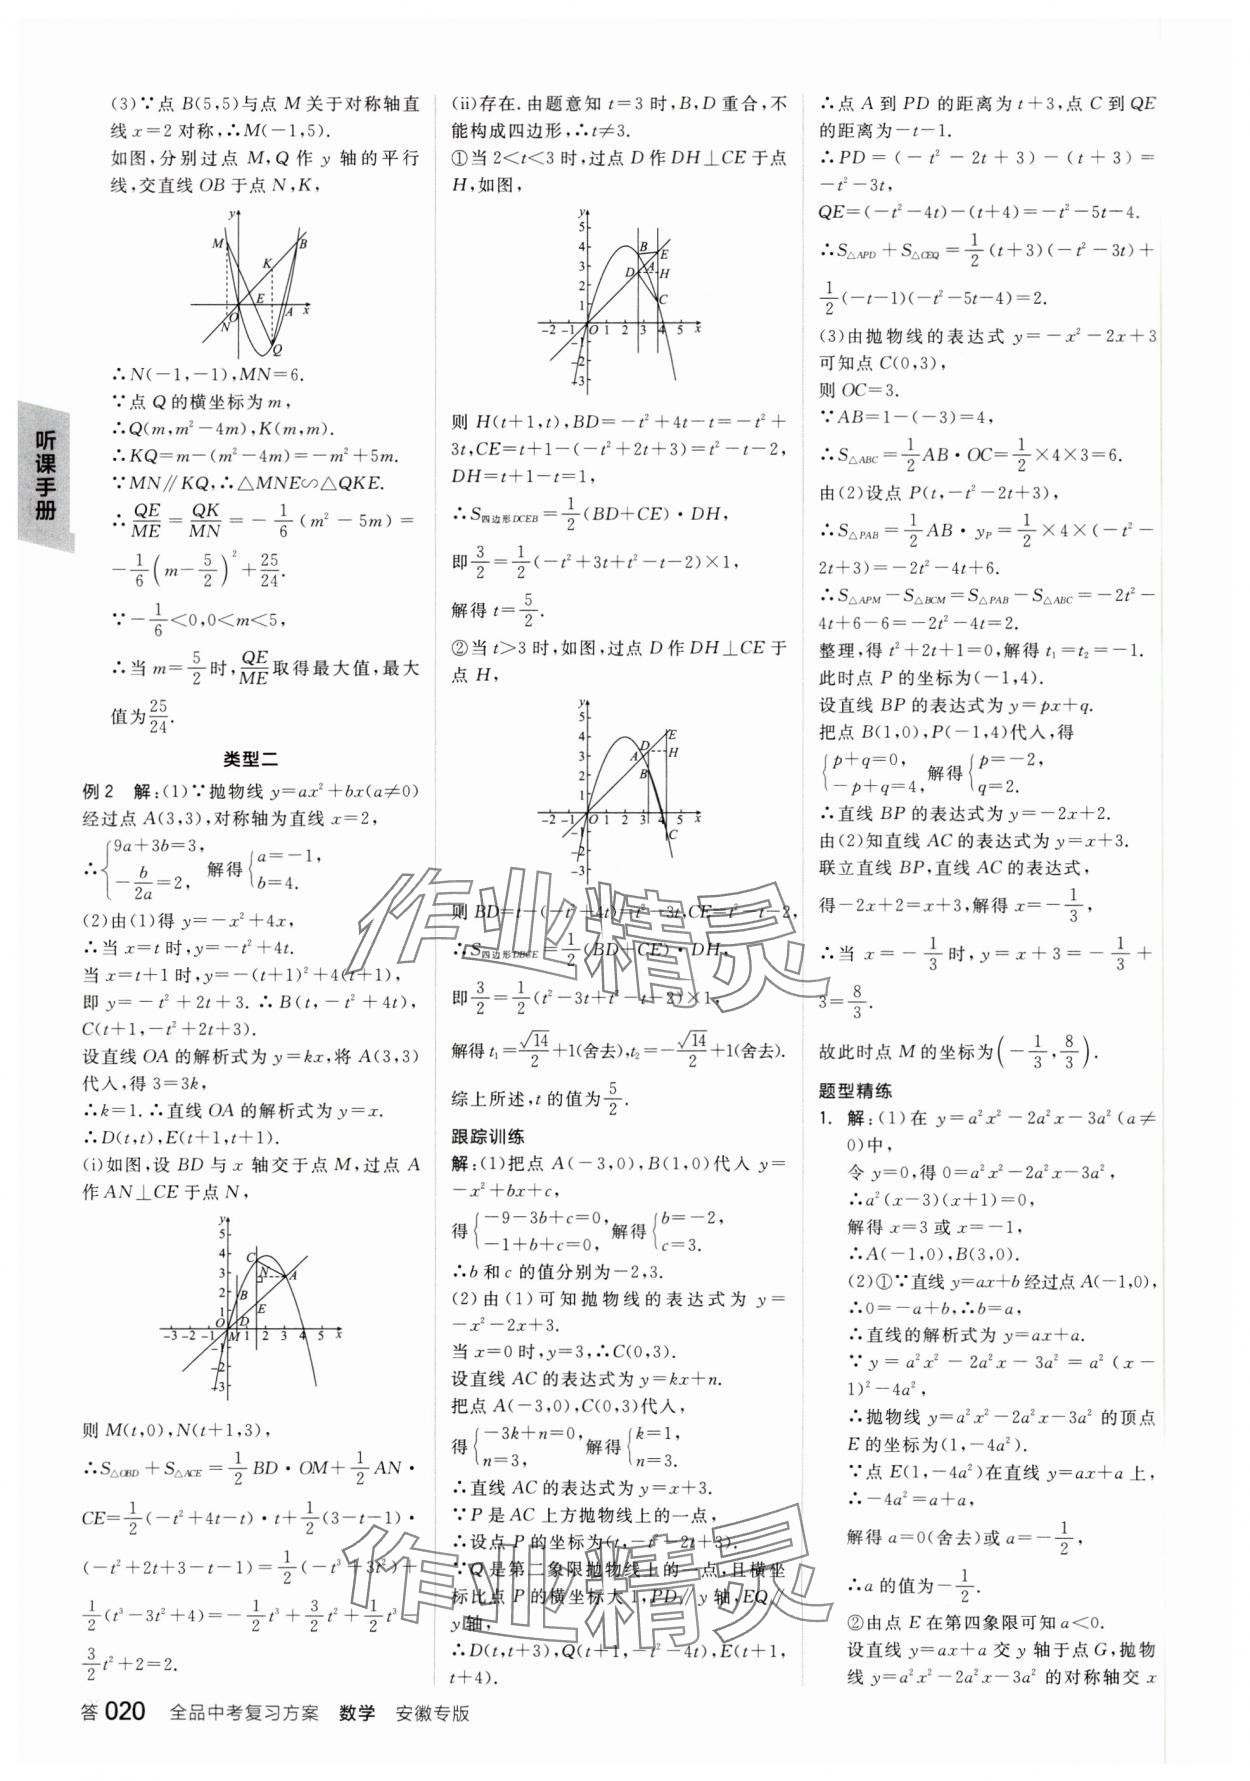 (3)∵点 B(5,5)与点 M 关于对称轴直
线 x=2 对称,∴M(-1,5).
如图,分别过点 M,Q 作 y 轴的平行
线,交直线 OB 于点 N,K,
∴N(-1,-1),MN=6.
∵点 Q 的横坐标为 m,
∴Q(m,m²-4m),K(m,m).
∴KQ=m-(m²-4m)=-m²+5m.
∵MN∥KQ,∴△MNE∽△QKE.
∴QE/ME=QK/MN=-1/6(m²-5m)=
-1/6(m-5/2)²+25/24.
∵-1/6<0,0<m<5,
∴当 m=5/2时,QE/ME取得最大值,最大
值为25/24.
类型二
例2 解:(1)∵抛物线 y=ax²+bx(a≠0)
经过点 A(3,3),对称轴为直线 x=2,
∴{9a+3b=3, -b/2a=2, 解得{a=-1, b=4.
(2)由(1)得 y=-x²+4x,
∴当 x=t 时,y=-t²+4t.
当 x=t+1时,y=-(t+1)²+4(t+1),
即 y=-t²+2t+3.∴B(t,-t²+4t),
C(t+1,-t²+2t+3).
设直线 OA 的解析式为 y=kx,将 A(3,3)
代入,得 3=3k,
∴k=1.∴直线 OA 的解析式为 y=x.
∴D(t,t),E(t+1,t+1).
(i)如图,设 BD 与 x 轴交于点 M,过点 A
作 AN⊥CE 于点 N,
则 M(t,0),N(t+1,3),
∴S△OBD+S△ACE=1/2 BD·OM+1/2 AN·
CE=1/2(-t²+4t-t)·t+1/2(3-t-1)·
(-t²+2t+3-t-1)=1/2(-t³+3t²)+
1/2(t³-3t²+4)=-1/2t³+3/2t²+1/2t³-
3/2t²+2=2.
(ii)存在.由题意知 t=3 时,B,D 重合,不
能构成四边形,∴t≠3.
①当 2<t<3 时,过点 D 作 DH⊥CE 于点
H,如图,
则 H(t+1,t),BD=-t²+4t-t=-t²+
3t,CE=t+1-(-t²+2t+3)=t²-t-2,
DH=t+1-t=1,
∴S四边形DCEB=1/2(BD+CE)·DH,
即3/2=1/2(-t²+3t+t²-t-2)×1,
解得 t=5/2.
②当 t>3 时,如图,过点 D 作 DH⊥CE 于
点 H,
则 BD=t-(-t²+4t)=t²-3t,CE=t²-t-2,
∴S四边形DBCE=1/2(BD+CE)·DH,
即3/2=1/2(t²-3t+t²-t-2)×1,
解得 t₁=√14/2+1(舍去),t₂=-√14/2+1(舍去).
综上所述,t 的值为5/2.
跟踪训练
解:(1)把点 A(-3,0),B(1,0)代入 y=
-x²+bx+c,
得{-9-3b+c=0, -1+b+c=0, 解得{b=-2, c=3.
∴b 和 c 的值分别为-2,3.
(2)由(1)可知抛物线的表达式为 y=
-x²-2x+3.
当 x=0 时,y=3,∴C(0,3).
设直线 AC 的表达式为 y=kx+n.
把点 A(-3,0),C(0,3)代入,
得{-3k+n=0, n=3, 解得{k=1, n=3.
∴直线 AC 的表达式为 y=x+3.
∵P 是 AC 上方抛物线上的一点,
∴设点 P 的坐标为(t,-t²-2t+3).
∵Q 是第二象限抛物线上的一点,且横坐
标比点 P 的横坐标大 1,PD∥y 轴,EQ∥
y 轴,
∴D(t,t+3),Q(t+1,-t²-4t),E(t+1,
t+4).
∴点 A 到 PD 的距离为 t+3,点 C 到 QE
的距离为-t-1.
∴PD=(-t²-2t+3)-(t+3)=
-t²-3t,
QE=(-t²-4t)-(t+4)=-t²-5t-4.
∴S△APD+S△CEQ=1/2(t+3)(-t²-3t)+
1/2(-t-1)(-t²-5t-4)=2.
(3)由抛物线的表达式 y=-x²-2x+3
可知点 C(0,3),
则 OC=3.
∵AB=1-(-3)=4,
∴S△ABC=1/2 AB·OC=1/2×4×3=6.
由(2)设点 P(t,-t²-2t+3),
∴S△PAB=1/2 AB·yP=1/2×4×(-t²-
2t+3)=-2t²-4t+6.
∴S△APM-S△BCM=S△PAB-S△ABC=-2t²-
4t+6-6=-2t²-4t=2.
整理,得 t²+2t+1=0,解得 t₁=t₂=-1.
此时点 P 的坐标为(-1,4).
设直线 BP 的表达式为 y=px+q.
把点 B(1,0),P(-1,4)代入,得
{p+q=0, -p+q=4, 解得{p=-2, q=2.
∴直线 BP 的表达式为 y=-2x+2.
由(2)知直线 AC 的表达式为 y=x+3.
联立直线 BP,直线 AC 的表达式,
得-2x+2=x+3,解得 x=-1/3,
∴当 x=-1/3时,y=x+3=-1/3+
3=8/3.
故此时点 M 的坐标为(-1/3,8/3).
题型精练
1. 解:(1)在 y=a²x²-2a²x-3a²(a≠
0)中,
令 y=0,得 0=a²x²-2a²x-3a²,
∴a²(x-3)(x+1)=0,
解得 x=3 或 x=-1,
∴A(-1,0),B(3,0).
(2)①∵直线 y=ax+b 经过点 A(-1,0),
∴0=-a+b,∴b=a,
∴直线的解析式为 y=ax+a.
∵y=a²x²-2a²x-3a²=a²(x-
1)²-4a²,
∴抛物线 y=a²x²-2a²x-3a² 的顶点
E 的坐标为(1,-4a²).
∵点 E(1,-4a²)在直线 y=ax+a 上,
∴-4a²=a+a,
解得 a=0(舍去)或 a=-1/2,
∴a 的值为-1/2.
②由点 E 在第四象限可知 a<0.
设直线 y=ax+a 交 y 轴于点 G,抛物
线 y=a²x²-2a²x-3a² 的对称轴交 x
听课手册
答 020 全品中考复习方案 数学 安徽专版
作业精灵
作业精灵